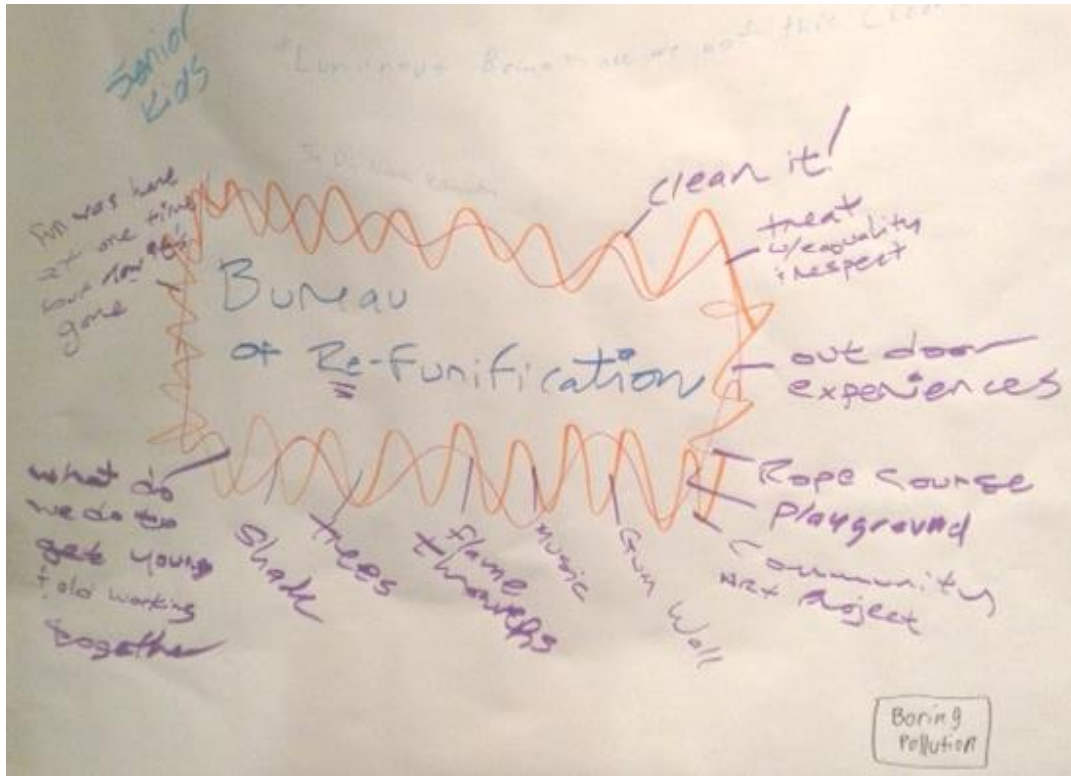 Senior
Kids
"Luminous Beings are we not this
Fun was here
at one time
but now it's
gone
Bureau
of Re-Funification
clean it!
treat
w/equality
& respect
out door
experiences
Rope course
Playground
Community
Art Project
Gum Wall
Music
flame
throwers
trees
Shade
what do
we do to
get young
+ old working
together
Boring
Pollution